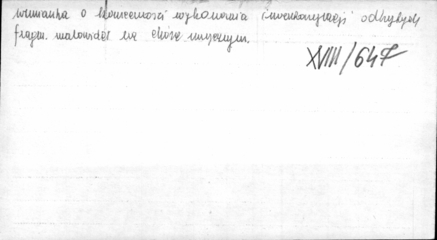 wzmianka o konieczności wykonania inwentaryzacji odkrytych
fragm. malowideł na chórze muzycznym.
XVIII/647